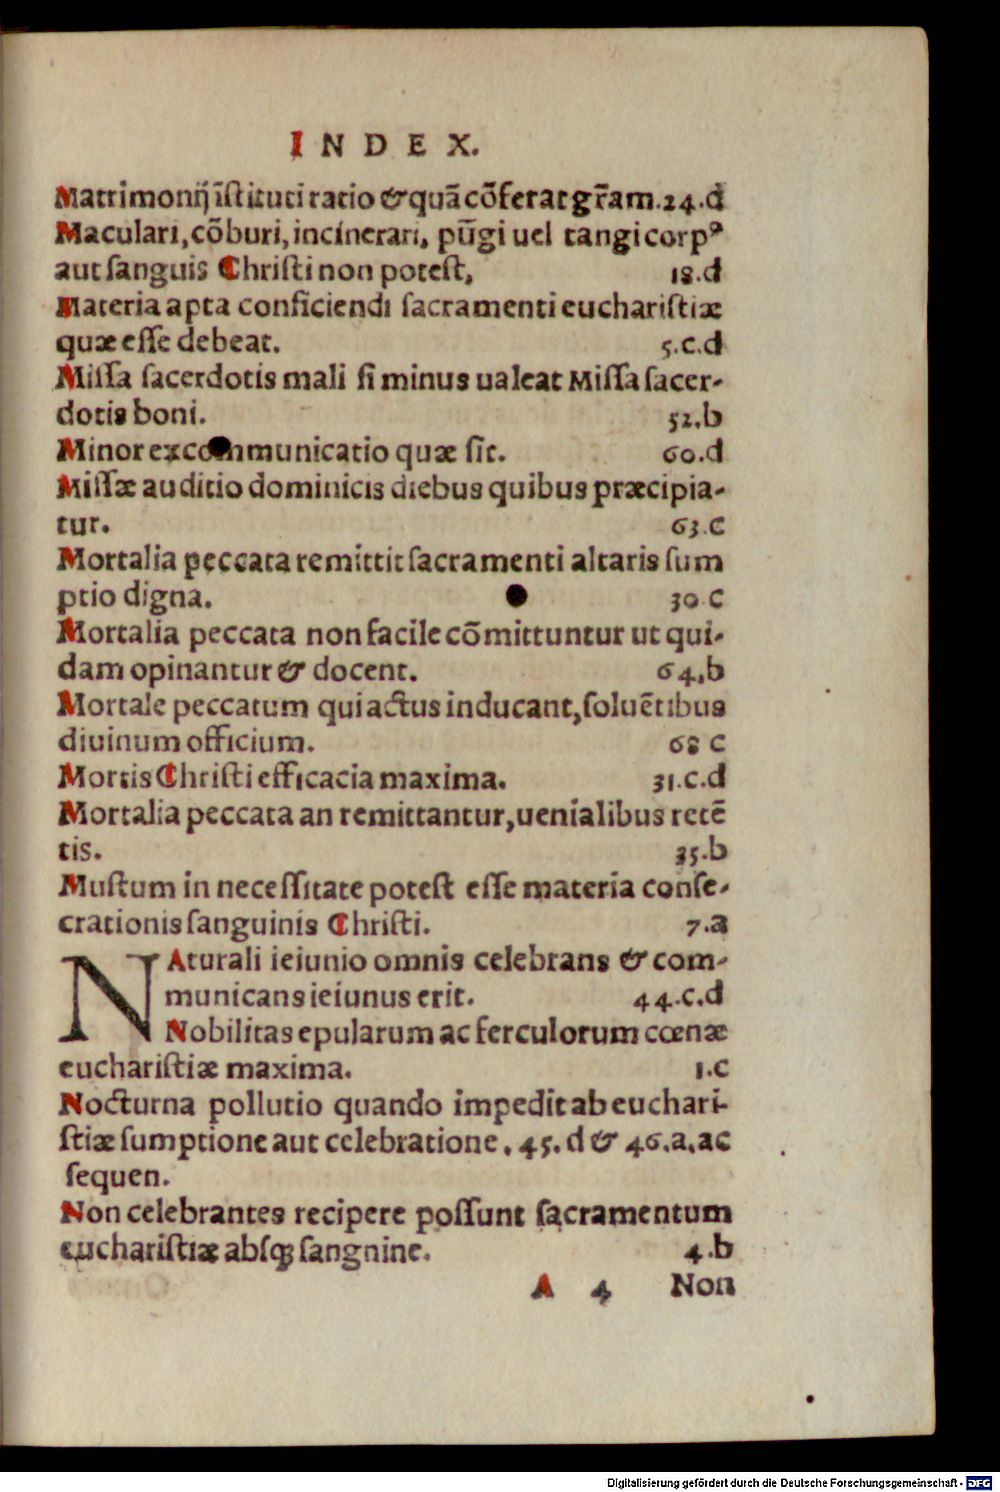 INDEX.
Matrimonij īſtituti ratio & quā cōferat gr̄am. 24.d
Maculari, cōburi, incinerari, pūgi uel tangi corpꝰ
aut ſanguis Chriſti non poteſt, 18.d
Materia apta conficiendi ſacramenti euchariſtiæ
quæ eſſe debeat. 5.c.d
Miſſa ſacerdotis mali ſi minus ualeat Miſſa ſacer-
dotis boni. 52.b
Minor excommunicatio quæ ſit. 60.d
Miſſæ auditio dominicis diebus quibus præcipia-
tur. 63.c
Mortalia peccata remittit ſacramenti altaris ſum
ptio digna. 30 c
Mortalia peccata non facile cōmittuntur ut qui-
dam opinantur & docent. 64.b
Mortale peccatum qui actus inducant, ſoluētibus
diuinum officium. 68 c
Mortis Chriſti efficacia maxima. 31.c.d
Mortalia peccata an remittantur, uenialibus retē
tis. 35.b
Muſtum in neceſſitate poteſt eſſe materia conſe-
crationis ſanguinis Chriſti. 7.a
NAturali ieiunio omnis celebrans & com-
municans ieiunus erit. 44.c.d
Nobilitas epularum ac ferculorum cœnæ
euchariſtiæ maxima. 1.c
Nocturna pollutio quando impedit ab euchari-
ſtiæ ſumptione aut celebratione. 45.d & 46.a.ac
ſequen.
Non celebrantes recipere poſſunt ſacramentum
euchariſtiæ abſqꝫ ſangnine. 4.b
A 4 Non
Digitalisierung gefördert durch die Deutsche Forschungsgemeinschaft - DFG